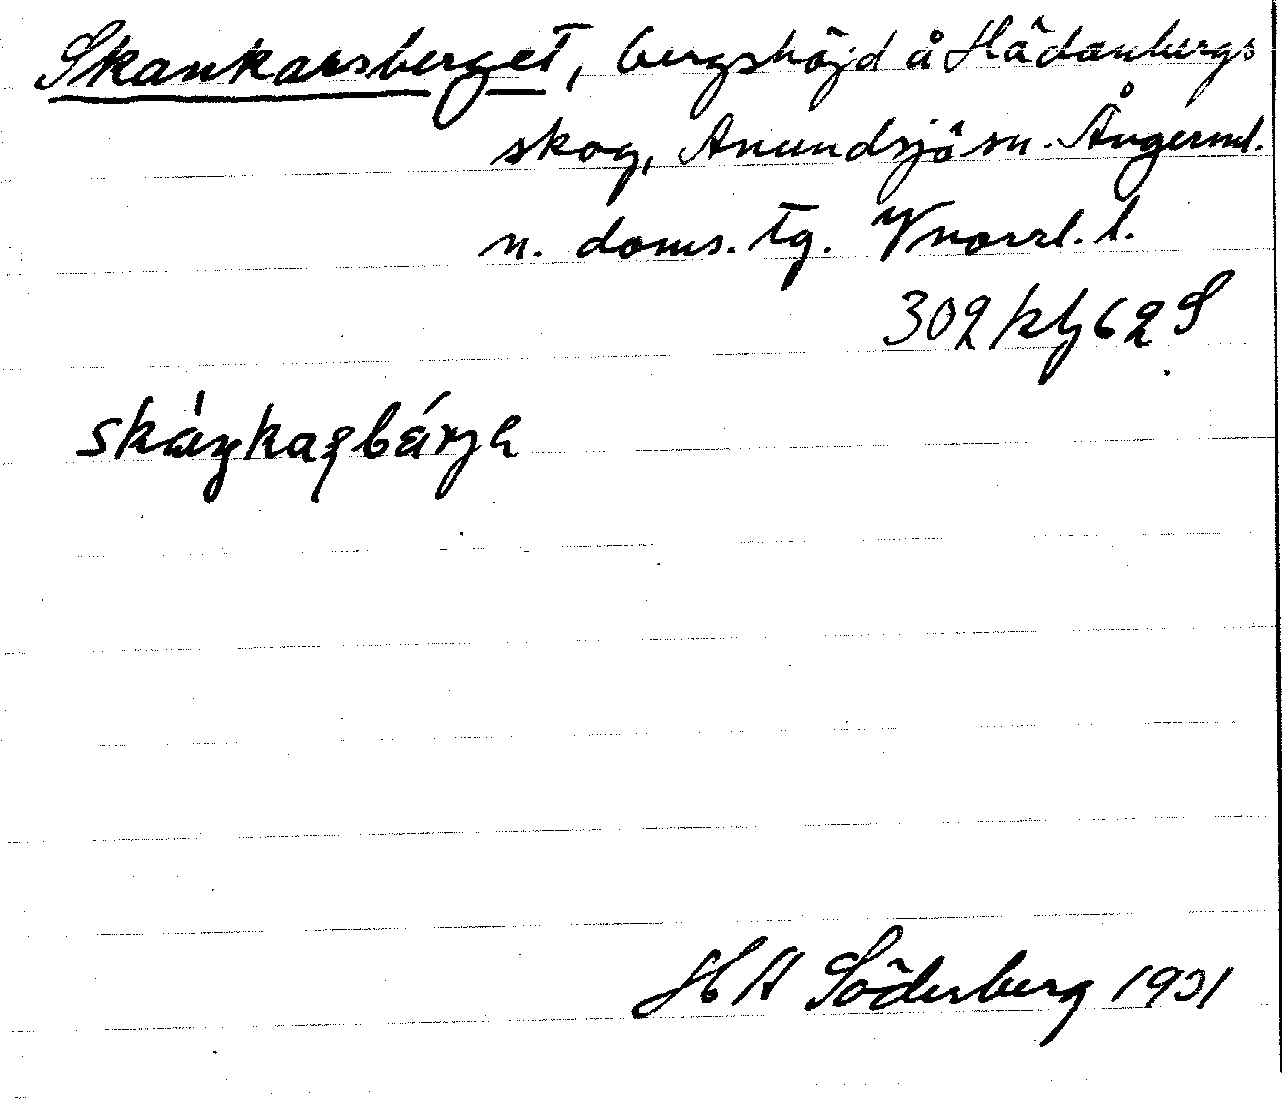 Skankarsberget, bergshöjd å Hädanbergs
skog, Anundsjö sn. Ångerml.
n. doms. tg. Vnorrl. l.
302 kbj 62 S
skáŋkaʂbärjə
H A Söderberg 1931